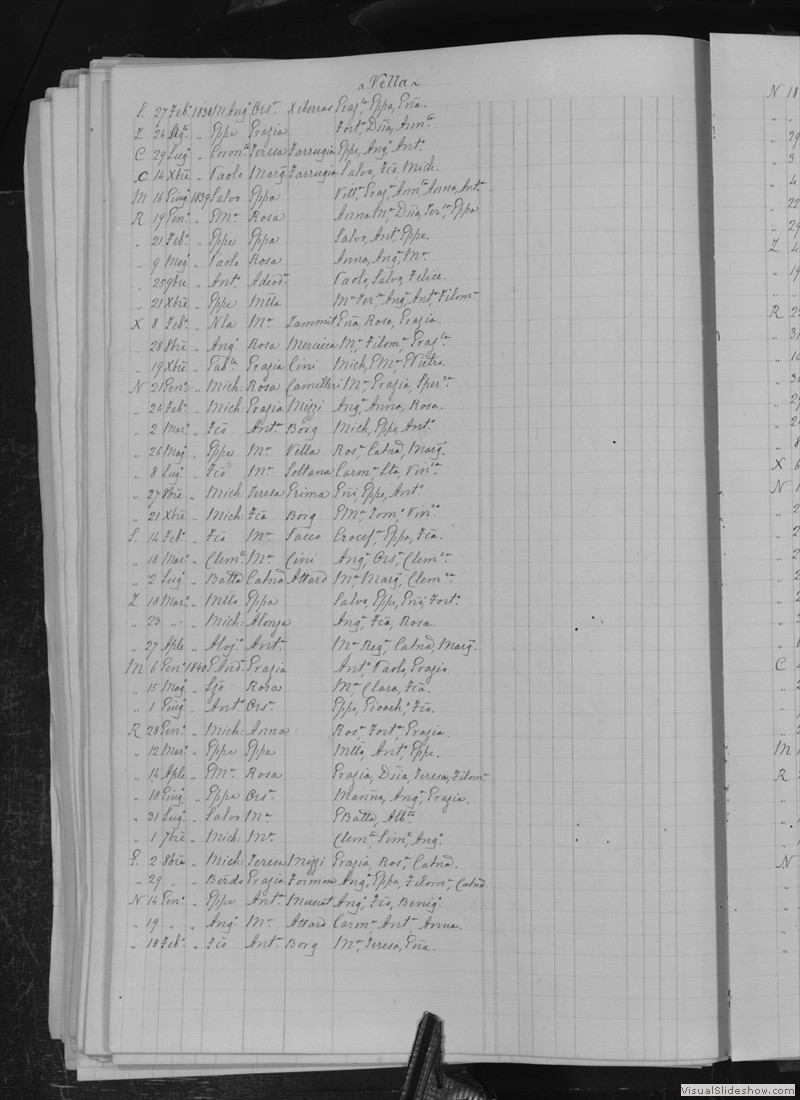 „Vella„
S. 27 Feb.º 1838 M Ang.º Ors.ª Xiberras Graz.la, Eppa, Eña.
Z 24 Ag.º „ Eppe Grazia Fort.ª, Dña, Ann.la
C 29 Lug.º „ Coron.to Teresa Farrugia Eppe, Ang.º Ant.º
C 14 Xbre „ Paolo Marg.ª Farrugia Salvo, Fco, Mich.
M 16 Giug.º 1839 Salvo Eppa Vitt.ª, Graz.ª, Ann.la, Anna, Ant.ª
R 19 Gen.º „ GM.ª Rosa Anna M.ª Dña, Ter.la, Eppa
„ 21 Feb.º „ Eppe Eppa Salvo, Ant.º, Eppe.
„ 9 Mag.º „ Paolo Rosa Anna, Ang.ª M.ª
„ 25 9bre „ Ant.º Adeod.ª Paolo, Salvo, Felice.
„ 21 Xbre „ Eppe Mtla M.ª Ter.ª, Ang.ª, Ant.ª, Filom.ª
X 8 Feb.º „ Nla M.ª Zammit Eña, Rosa, Grazia.
„ 28 8bre „ Ang.º Rosa Mercieca M.ª, Filom.ª, Graz.la
„ 19 Xbre „ Fab.la Grazia Cini Mich, GM.ª GPietro.
N 21 Gen.º „ Mich: Rosa Camilleri M.ª, Grazia, Sper.za
„ 24 Feb.º „ Mich: Grazia Mizzi Ang.ª, Anna, Rosa.
„ 2 Mar.º „ Fco Ant.ª Borg Mich, Eppe, Ant.º
„ 26 Mag. „ Eppe M.ª Vella Ros.ª, Catnª, Marg.ª
„ 8 Lug.º „ Fco M.ª Soltana Carm.ª, Lta, Vin.za
„ 27 8bre „ Mich: Teresa Grima Eñi, Eppe, Ant.º
„ 21 Xbre „ Mich: Fca Borg GM.ª, Tom.º, Vin.zo
S. 14 Feb.º „ Fco M.ª Sacco Crocef.ª, Eppa, Fca.
„ 18 Mar.º „ Clem.te M.ª Cini Ang.ª, Ors.ª, Clem.za
„ 2 Lug.º „ Batta Catnª Attard M.ª, Marg.ª, Clem.za
Z 18 Mar.º „ Mtto Eppa Salvo, Eppe, Eñi, Fort.º
„ 23 „ „ Mich: Alonza Ang.ª, Fca, Rosa.
„ 27 Aple „ Aloj.º Ant.ª M.ª Reg.ª, Catnª, Marg.ª
M 6 Gen.º 1840 GAnd.ª Grazia Ant.º, Paolo, Grazio.
„ 15 Mag. „ Ljo Rosa M.ª, Clara, Fca.
„ 1 Giug.º „ Ant.º Ors.ª Eppe, Gioach.º, Fco.
R 28 Gen.º „ Mich: Anna Ros.ª, Fort.ª, Grazia.
„ 12 Mar.º „ Eppe Eppa Mtto, Ant.º, Eppe.
„ 14 Aple „ GM.ª Rosa Grazia, Dña, Teresa, Filom.ª
„ 18 Giug. „ Eppe Ors.ª Mariña, Ang.ª, Grazia.
„ 31 Lug.º „ Salvo M.ª GBatta, Alb.to
„ 1 7bre „ Mich: M.ª Clem.te, Sim.e, Ang.º
S. 2 8bre „ Mich: Teresa Mizzi Grazia, Ros.ª, Catnª.
„ 29 „ „ Berdo Grazia Formosa Ang.ª, Eppa, Filom.ª, Catnª.
N 14 Gen.º „ Eppe Ant.ª Muscat Ang.º, Fco, Benig.º
„ 19 „ „ Ang.º M.ª Attard Carm.ª, Ant.ª, Anna.
„ 18 Feb.º „ Fco Ant.ª Borg M.ª, Teresa, Eña.
VisualSlideshow.com